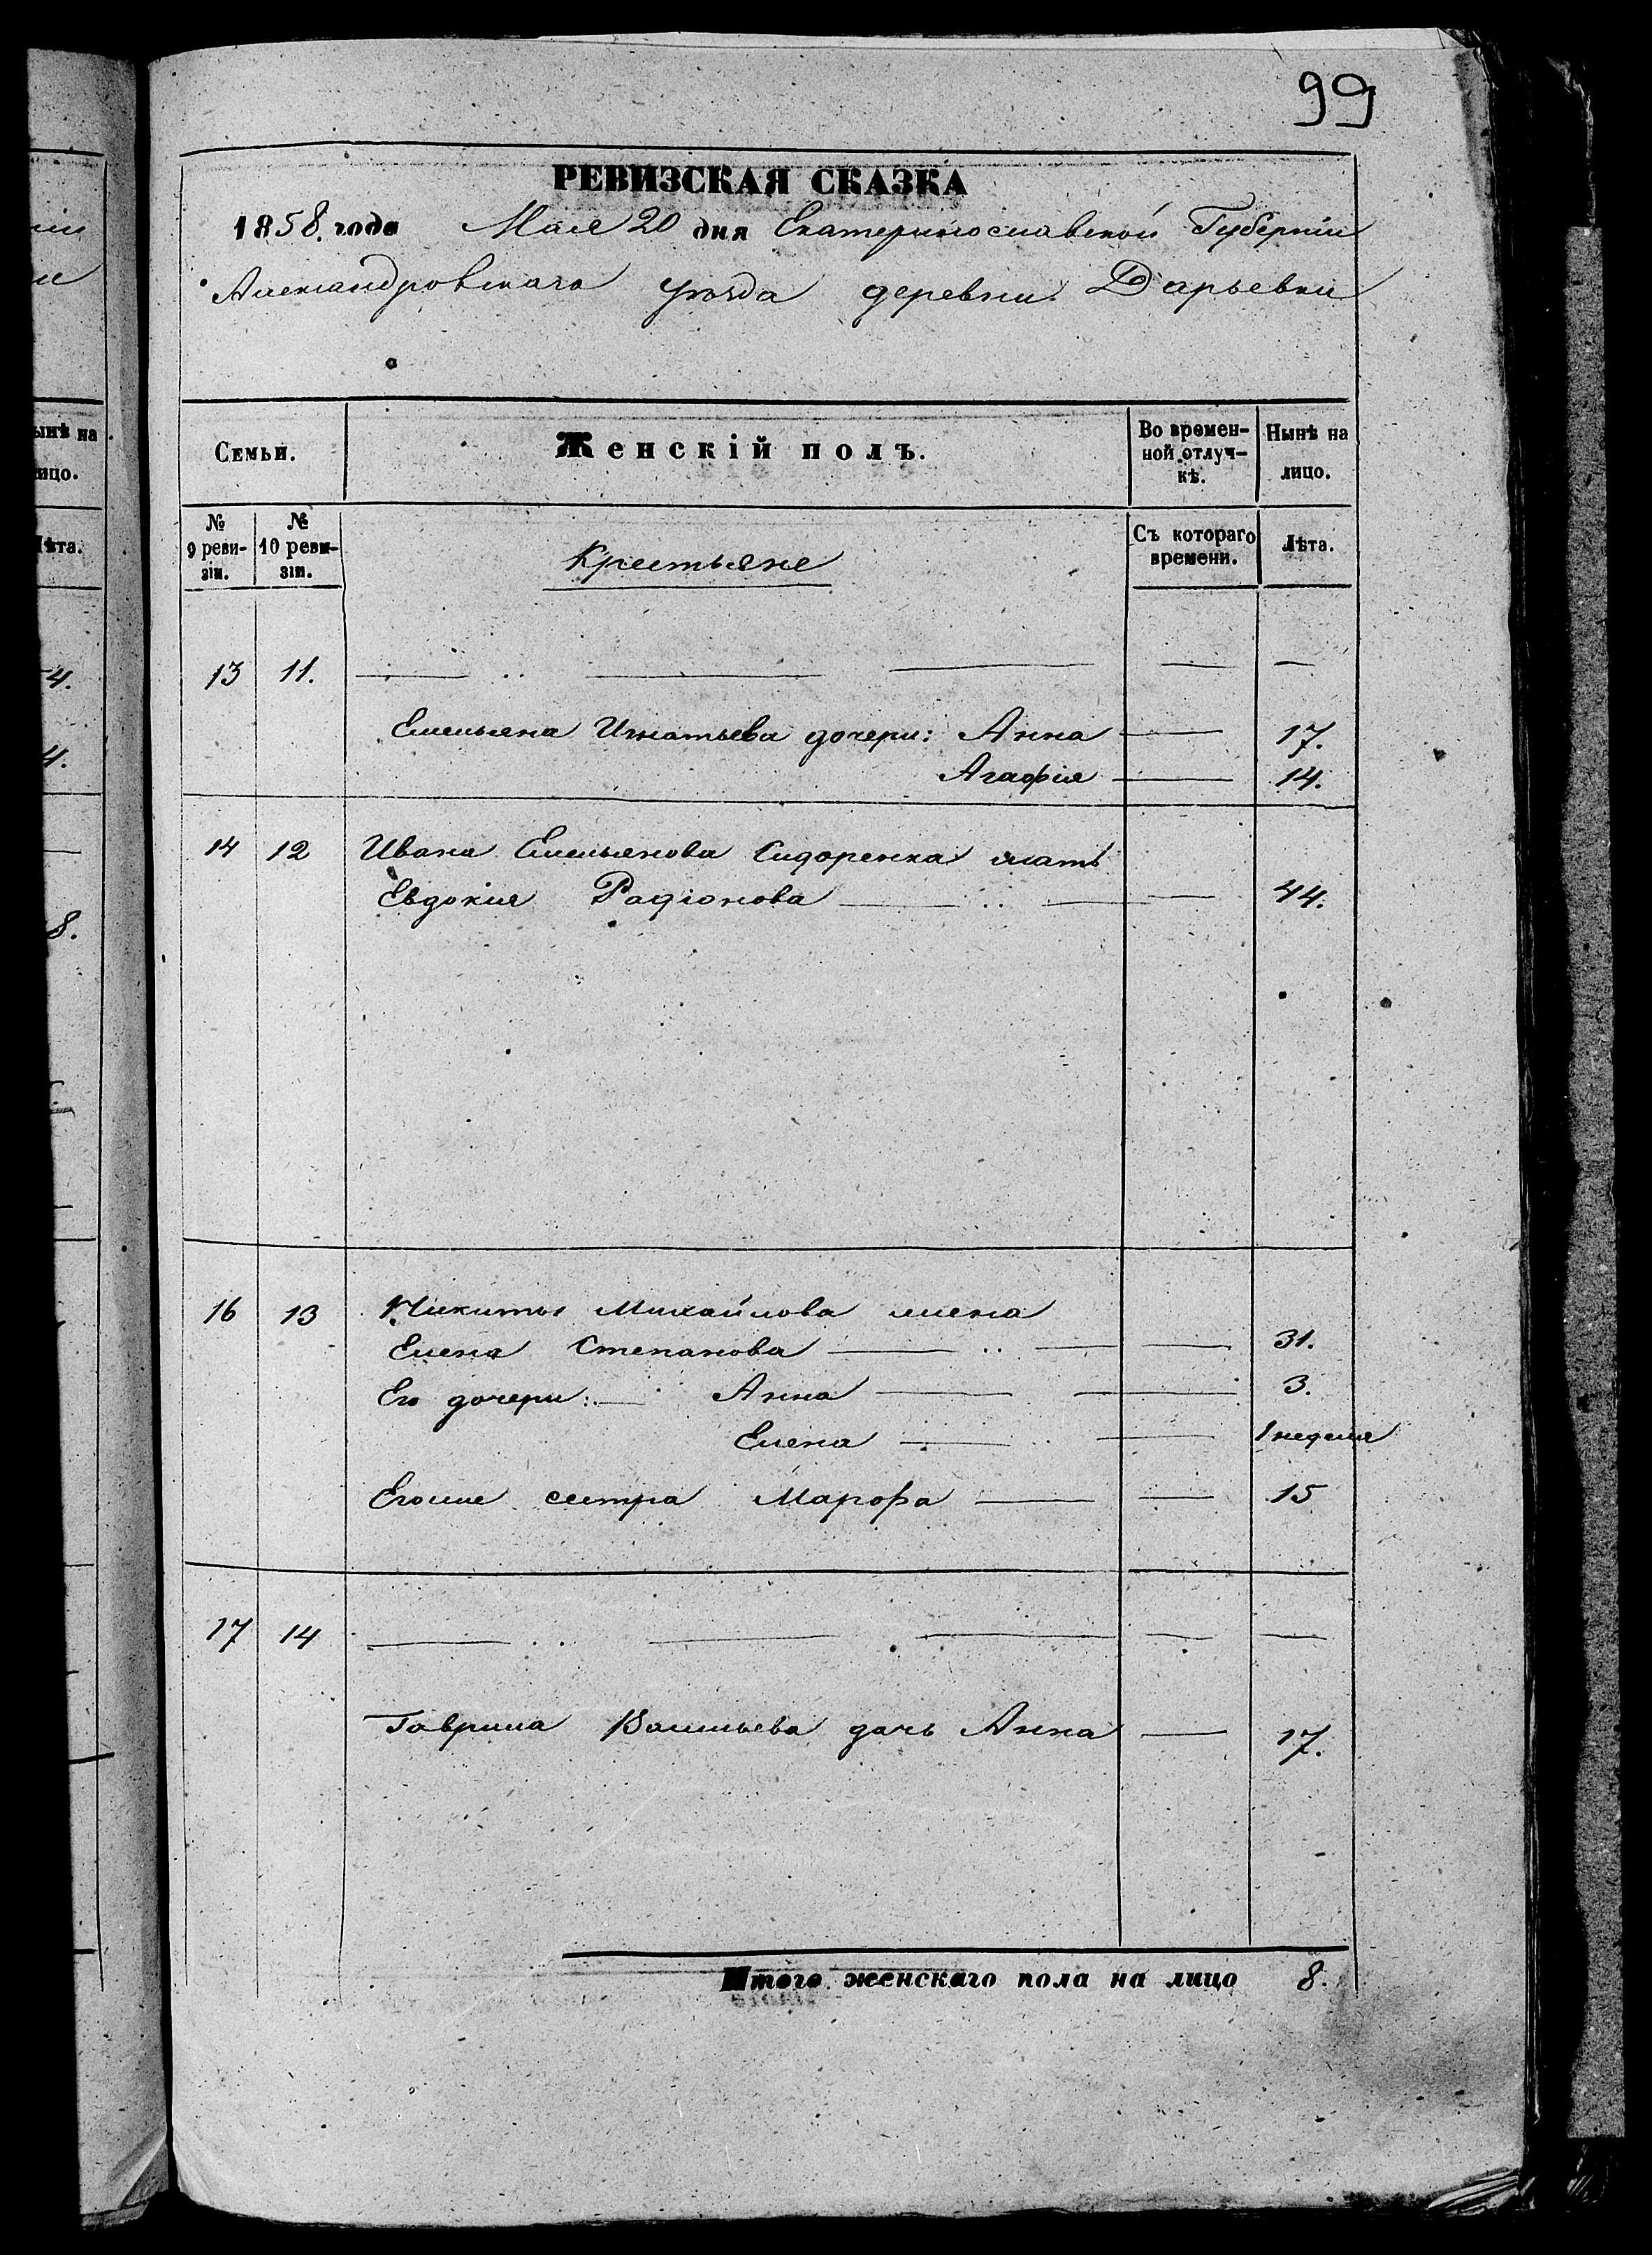 99
РЕВИЗСКАЯ СКАЗКА
1858. года Мая 20 дня Екатеринославской Губерніи
Александровскаго уѣзда деревни Дарьевки
Семьи.
Женскій полъ.
Во времен-
ной отлуч-
кѣ.
Нынѣ на
лицо.
№
9 реви-
зіи.
№
10 реви-
зіи.
Крестьяне
Съ котораго
времени.
Лѣта.
13 11.
Емельяна Игнатьева дочери: Анна 17.
Агафія 14.
14 12 Ивана Емельянова Сидоренка мать
Евдокия Радіонова 44.
16 13 Никиты Михайлова жена
Елена Степанова 31.
Его дочери: Анна 3.
Елена 1 неделя
Егоже сестра Марофа 15
17 14
Гаврила Васильева дочь Анна 17.
Итого женскаго пола на лицо 8.